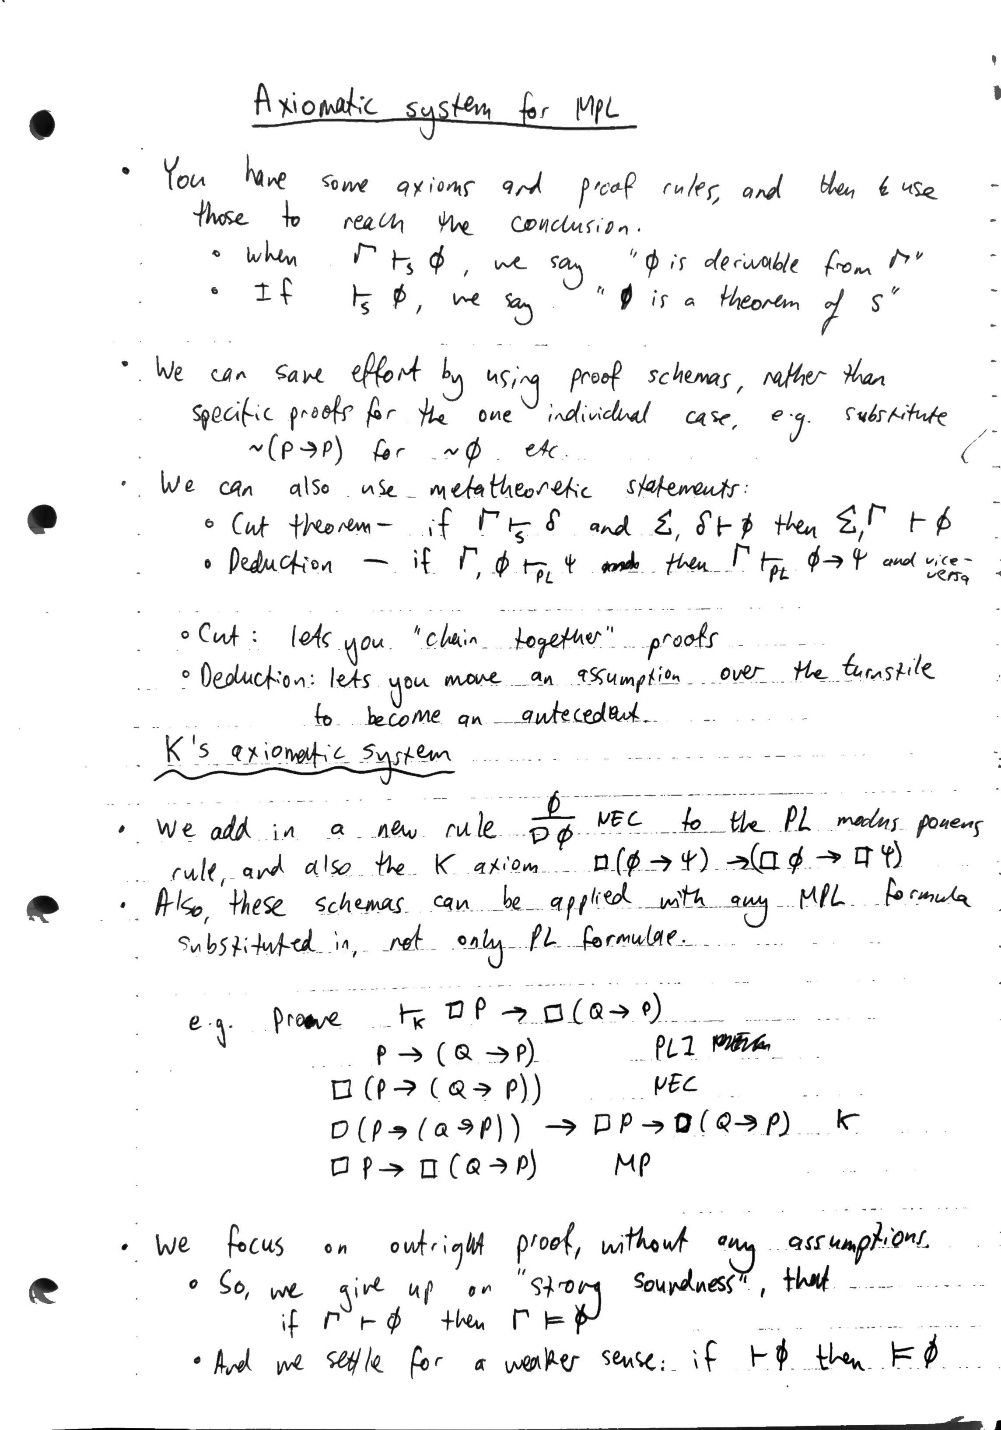 Axiomatic system for MPL
• You have some axioms and proof rules, and then use
those to reach the conclusion.
• when Γ ⊢s ϕ, we say "ϕ is derivable from Γ"
• If ⊢s ϕ, we say "ϕ is a theorem of S"
• We can save effort by using proof schemas, rather than
specific proofs for the one individual case, e.g. substitute
~(P→P) for ~ϕ etc.
• We can also use metatheoretic statements:
• Cut theorem – if Γ ⊢s δ and Σ, δ ⊢ ϕ then Σ,Γ ⊢ ϕ
• Deduction – if Γ, ϕ ⊢PL ψ then Γ ⊢PL ϕ→ψ and vice-
versa
• Cut: lets you "chain together" proofs
• Deduction: lets you move an assumption over the turnstile
to become an antecedant.
K's axiomatic system
• We add in a new rule ϕ/□ϕ NEC to the PL modus ponens
rule, and also the K axiom □(ϕ→ψ)→(□ϕ→□ψ)
• Also, these schemas can be applied with any MPL formula
substituted in, not only PL formulae.
e.g. Prove ⊢K □P → □(Q→P)
P→(Q→P) PL1
□(P→(Q→P)) NEC
□(P→(Q→P)) → □P→□(Q→P) K
□P→□(Q→P) MP
• We focus on outright proof, without any assumptions.
• So, we give up on "strong soundness", that
if Γ ⊢ ϕ then Γ ⊨ ϕ
• And we settle for a weaker sense: if ⊢ϕ then ⊨ϕ